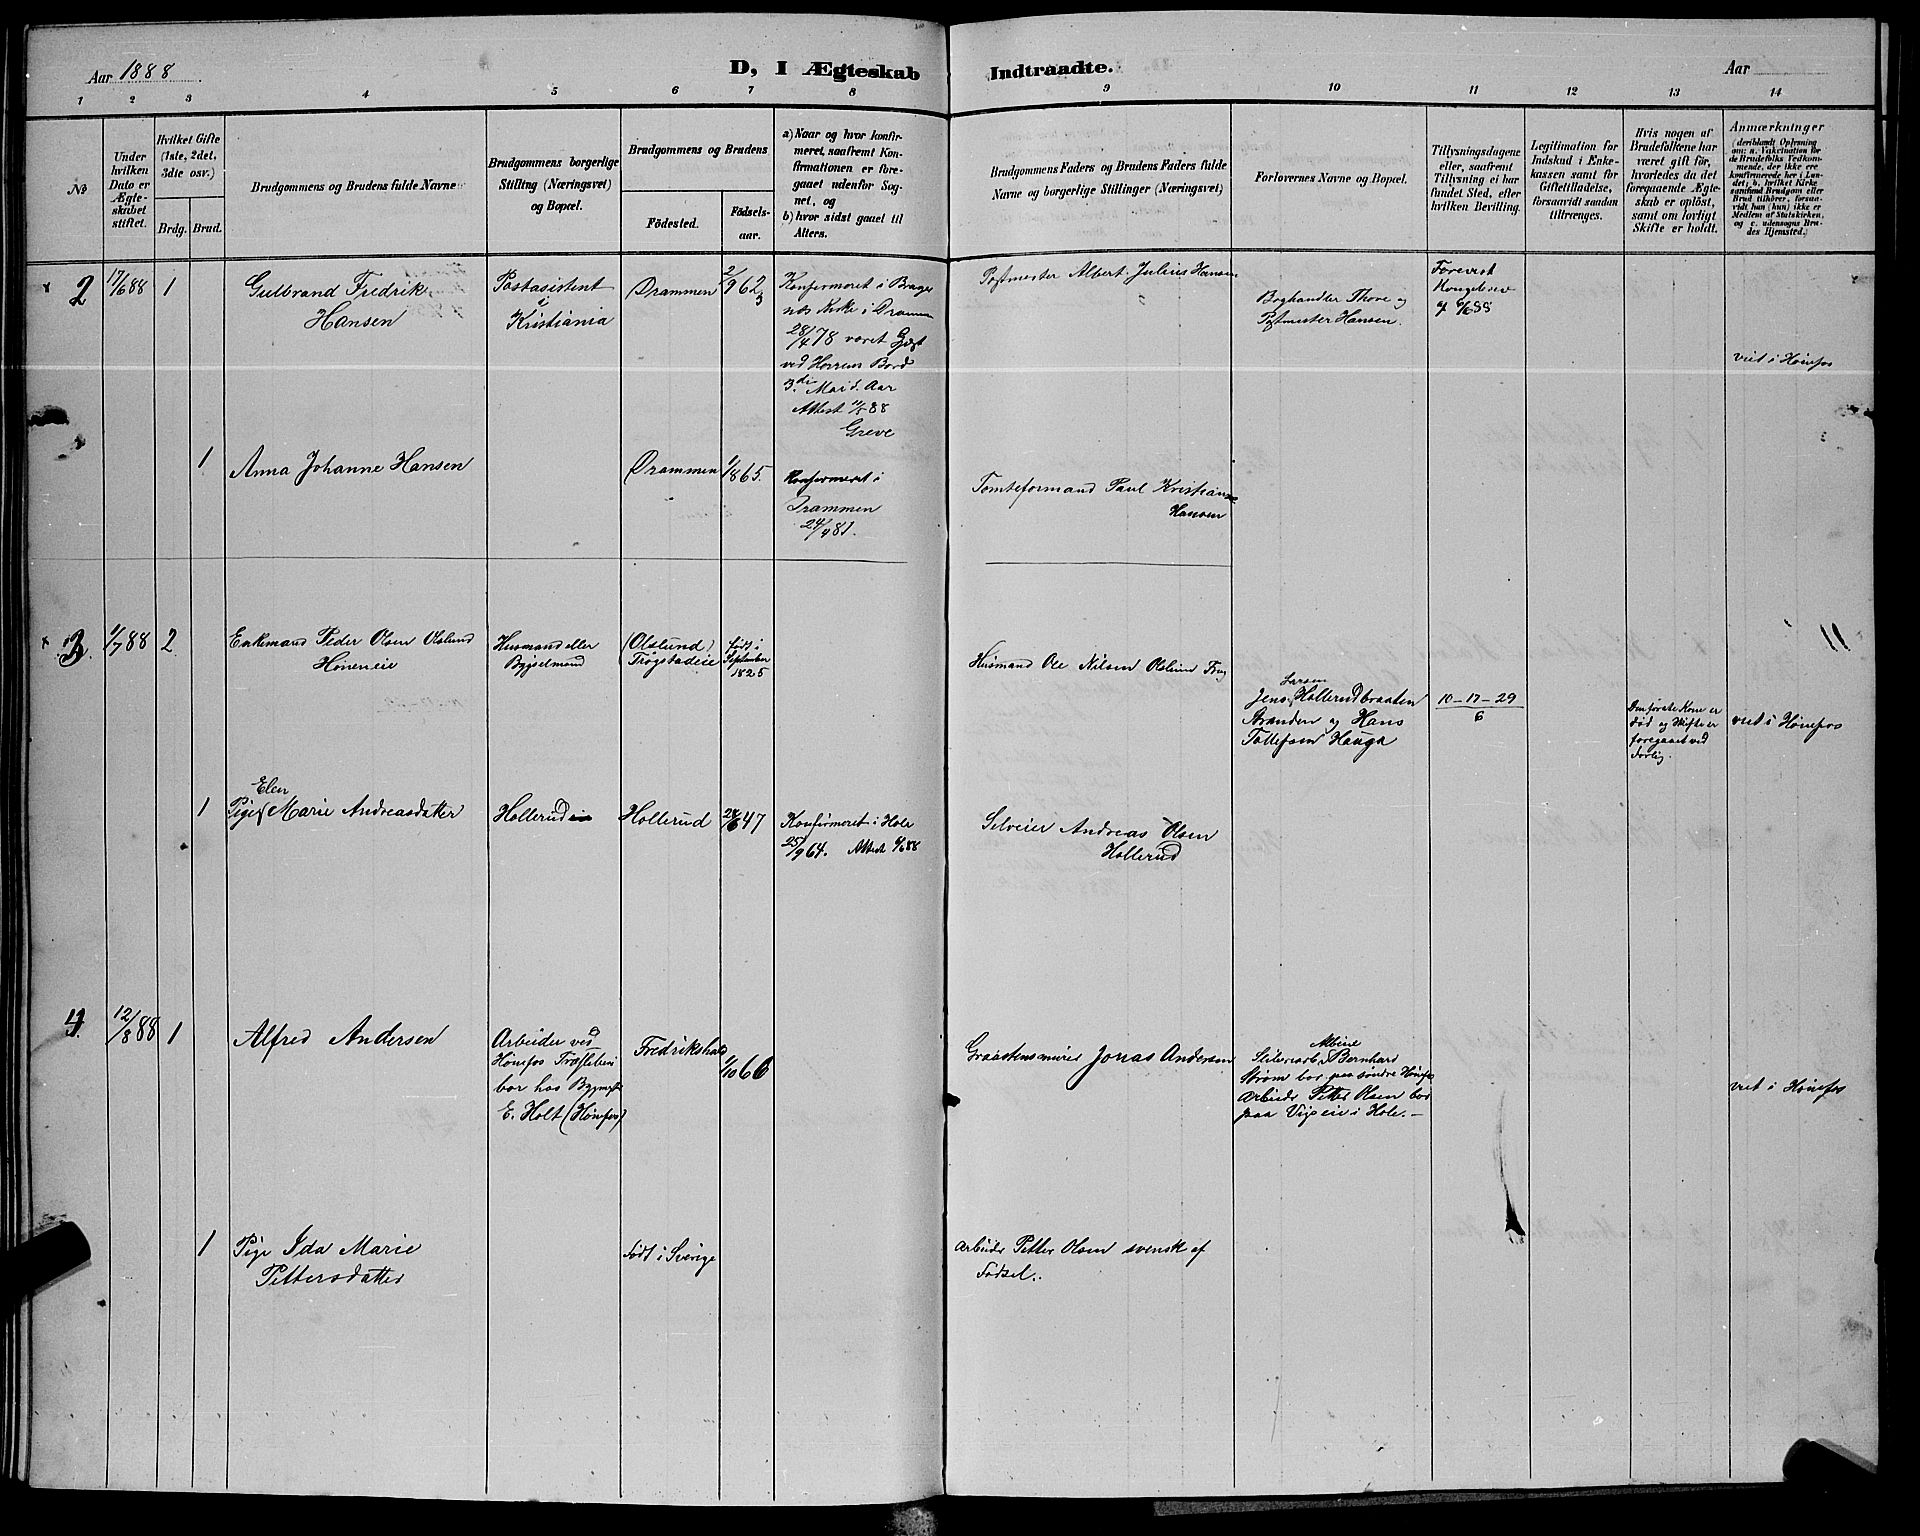 Aar 1888
D, I Ægteskab Indtraadte.
Aar
1 2 3 4 5 6 7 8 9 10 11 12 13 14
No
Under
hvilken
Dato er
Ægte-
skabet
stiftet.
Hvilket Gifte
(1ste, 2det,
3die osv.)
Brdg. Brud.
Brudgommens og Brudens fulde Navne
Brudgommens borgerlige
Stilling (Næringsvei)
og Bopæl.
Brudgommens og Brudens
Fødested.
Fødsels-
aar.
a) Naar og hvor konfir-
meret, saafremt Kon-
firmationen er fore-
gaaet udenfor Sog-
net, og
b) hvor sidst gaaet til
Alters.
Brudgommens Faders og Brudens Faders fulde
Navne og borgerlige Stillinger (Næringsvei)
Forlovernes Navne og Bopæl.
Tillysningsdagene
eller, saafremt
Tillysning ei har
fundet Sted, efter
hvilken Bevilling.
Legitimation for
Indskud i Enke-
kassen samt for
Giftetilladelse,
forsaavidt saadan
tiltrænges.
Hvis nogen af
Brudefolkene har
været gift før,
hvorledes da det
foregaaende Ægte-
skab er opløst,
samt om lovligt
Skifte er holdt.
Anmærkninger
(deriblandt Oplysning
om: a. Vakcination for
de Brudefolks Vedkom-
mende, der ikke ere
konfirmerede her i Lan-
det; b. hvilket Kirke
samfund Brudgom eller
Brud tilhører, forsaa-
vidt han (hun) ikke er
Medlem af Statskirken,
og c. udensogns Bru-
des Hjemsted.)
2
17/6 88
1
Gulbrand Fredrik
Hansen
Postasistent
i
Kristiania
Drammen
2/9 62
Konfirmeret i Brager
nes Kirke i Drammen
28/4 78 været Gjæst
ved Herrens Bord
3di Mai d. Aar
Attest 11/5 88
Greve
Postmester Albert Julius Hansen
Boghandler Thore og
Postmester Hansen.
Forevist
Kongebrev
viet i Hønefos
1
Anna Johanne Hansen
Drammen
1/8 65.
Konfirmeret i
Drammen
24/4 81.
Tomteformand Paul Kristian
Hansen
3.
1/7 88
2
Enkemand Peder Olsen Olslund
Høneneie
Husmand eller
Bygselmand
(Olslund)
Trøgstadeie
født i
September
1825
Husmand Ole Nilsen Olslund
Larsen
Jens Hollerudbraaten
Stranden og Hans
Tollefsen Hauga
10-17-29
6
Den første Kone er
død og Skifte er
foregaaet ved
Forlig.
viet i Hønefos
1
Elen
Pige Marie Andreasdatter
Hollerud
Hollerud
28/6 47
Konfirmeret i Hole
25/9 64. Attest 6/6 88
Selveier Andreas Olsen
Hollerud
4.
12/8 88
1
Alfred Andersen
Arbeider ved
Hønefos Træsliberi
bor hos Bygmstr
E. Holt (Hønefos)
Fredrikshald
1/10 66
Graastensmurer Jonas Andersen
Albin
Sliberiarb. Bernhard
Strøm bor paa søndre Hønefos
Arbeider Petter Olsen bor
paa Vigseie i Hole.-
viet i Hønefos
1
Pige Ida Marie
Pettersdatter
Født i Sverige
Arbeider Petter Olsen svensk af
Fødsel.